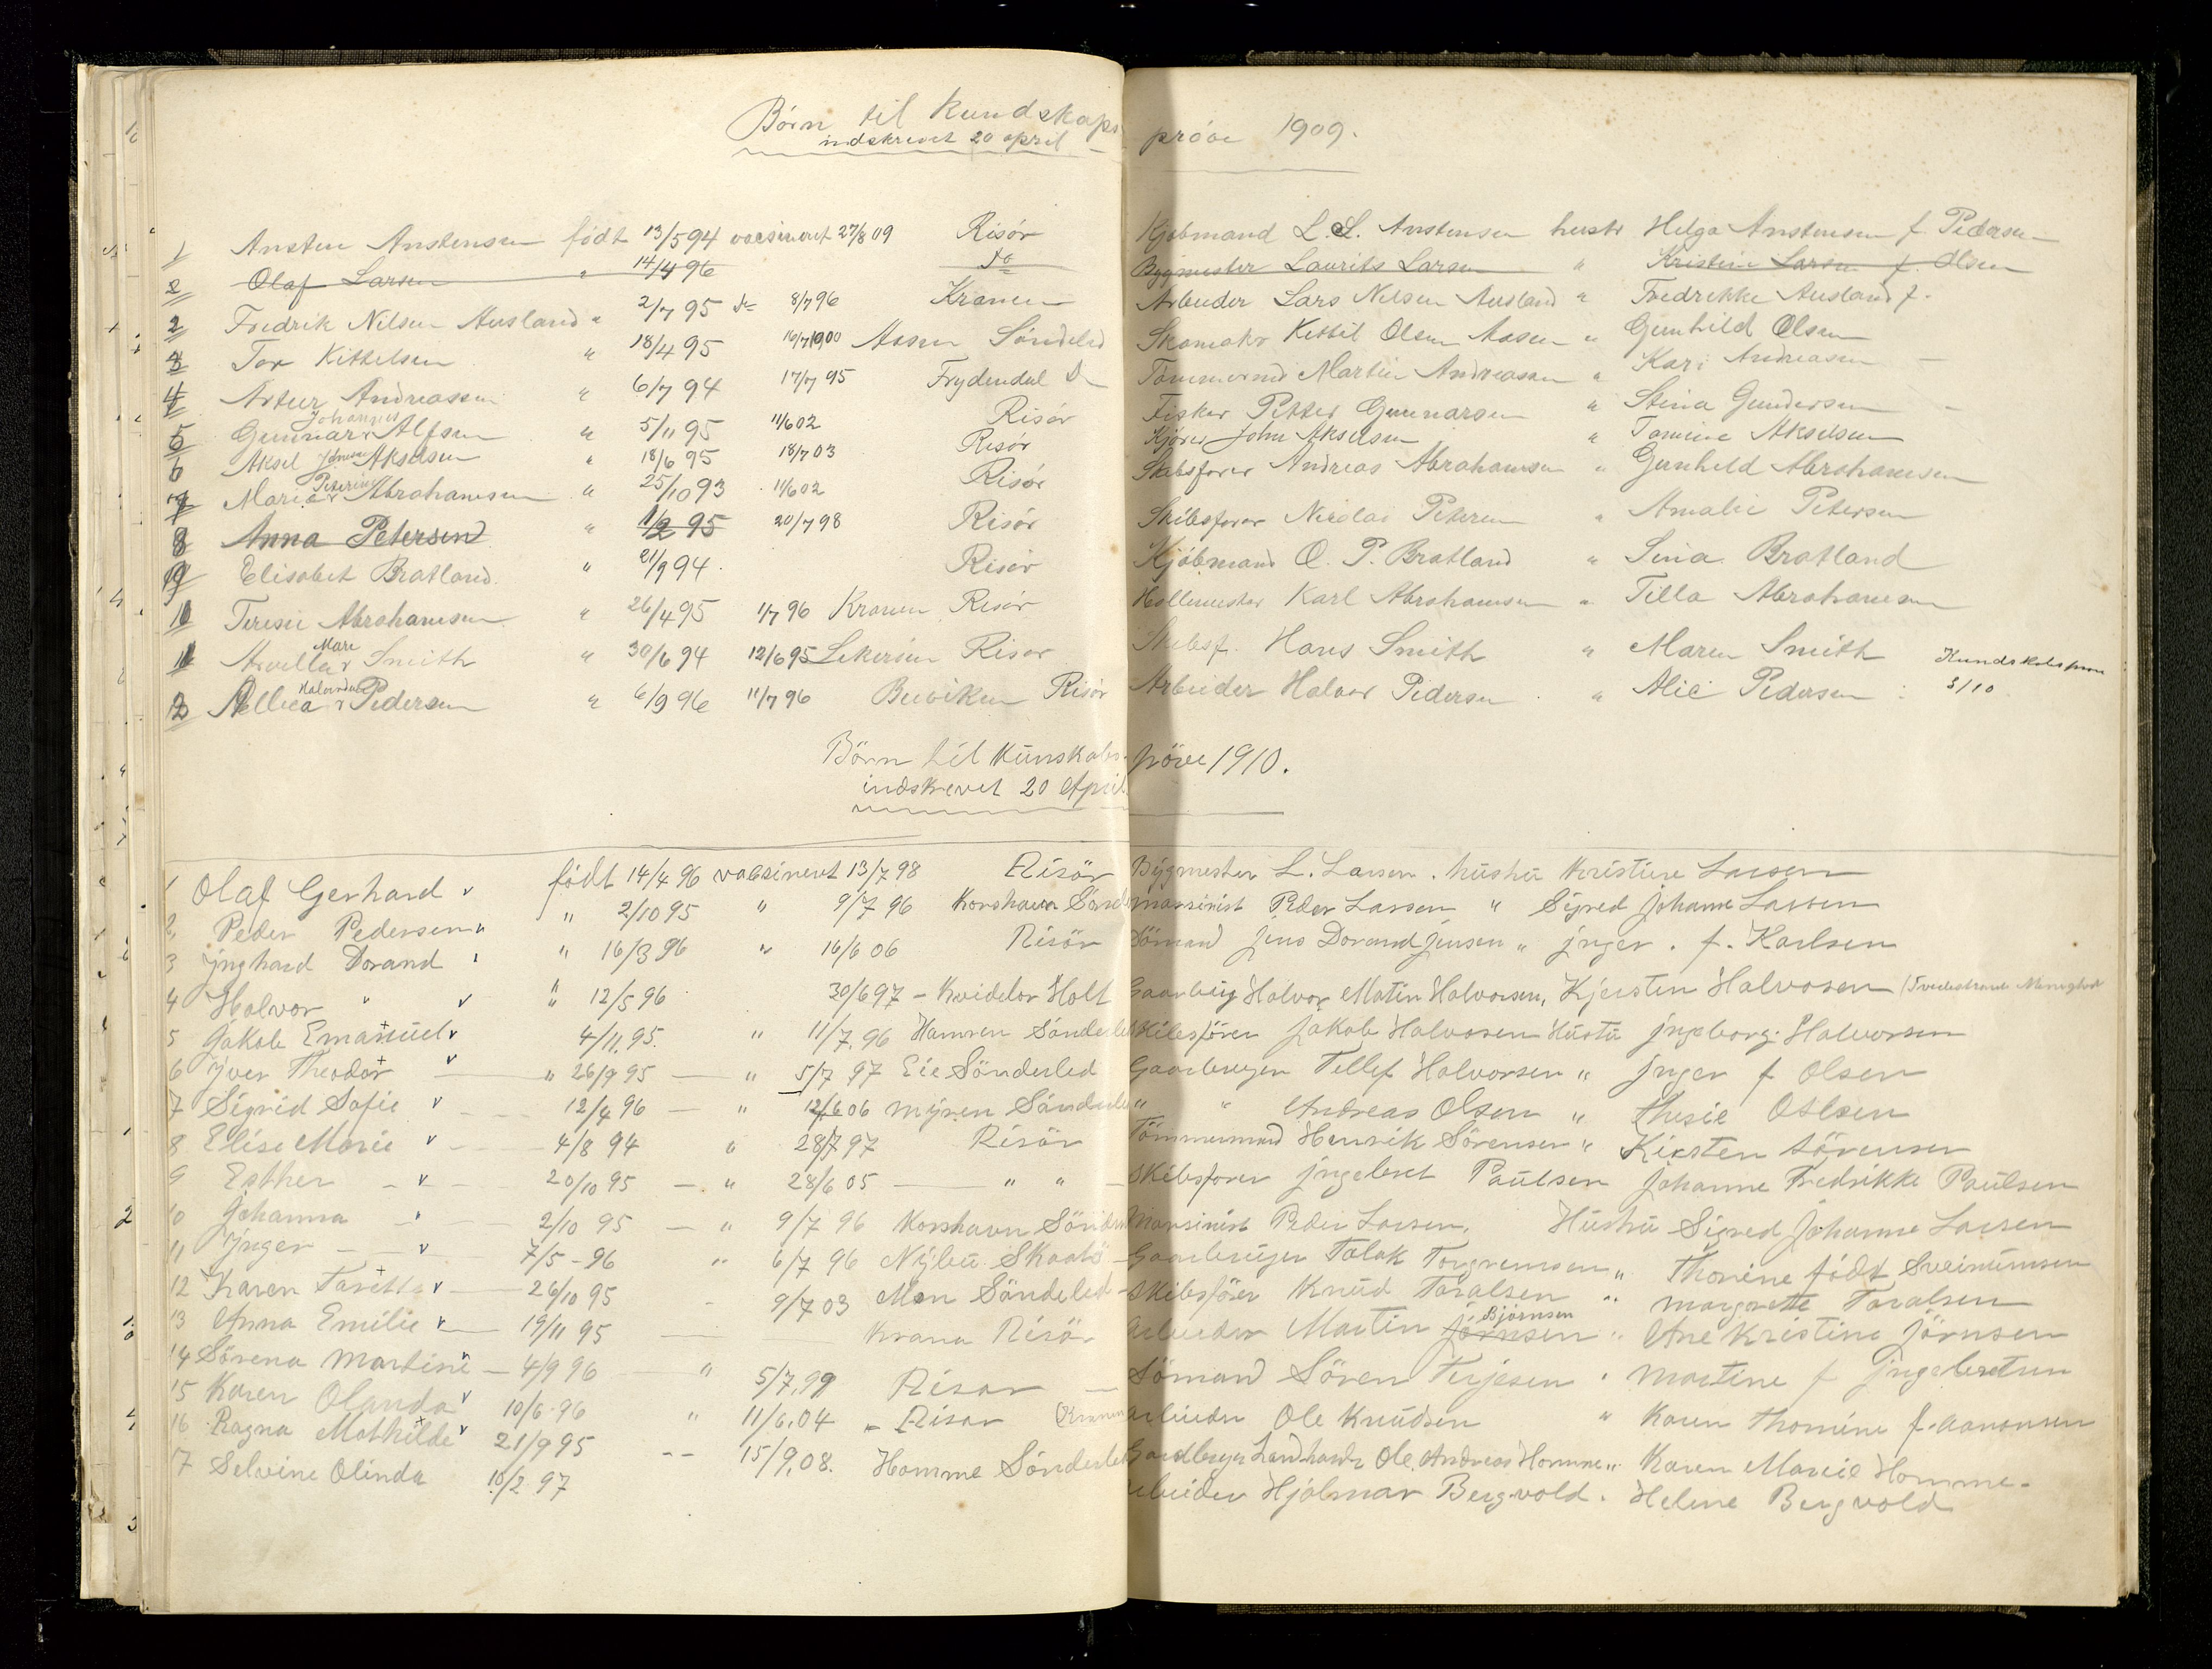 Børn til Kundskaps prøve 1909.
indskrevet 20 april
1 Ansten Anstensen født 13/5 94 vacsineret 27/8 09 Risør Kjøbmand L. L. Anstensen hustr Helga Anstensen f. Pedersen
2 Olaf Larsen " 14/4 96 do Bygmester Laurits Larsen " Kristine Larsen f. Olsen
2 Fredrik Nilsen Ausland " 2/7 95 do 8/7 96 Kranen Arbeider Lars Nilsen Ausland " Fredrikke Ausland f.
3 Tor Kittelsen " 18/4 95 16/7 1900 Aasen Søndeled Skomaker Kittil Olsen Aasen " Gunhild Olsen
4 Artur Andreassen " 6/7 94 17/7 95 Frydendal Tømmermd Martin Andreassen " Kari Andreasen
5 Gunnar Johannes Alfsen " 5/11 95 11/6 02 Risør Fisker Petter Gunnarsen " Stina Gundersen
6 Aksel Akselsen " 18/6 95 18/7 03 Risør Kjører John Akselsen " Tomine Akselsen
7 Marie Petrine Abrahamsen " 25/10 93 11/6 02 Risør Skibsfører Andreas Abrahamsen " Gunhild Abrahamsen
8 Anna Petersen " 1/2 95 20/7 98 Risør Skibsfører Nicolai Petersen " Amalie Petersen
9 Elisabet Bratland " 21/9 94 Risør Kjøbmand O. P. Bratland " Sina Bratland
10 Teresie Abrahamsen " 26/4 95 1/7 96 Kranen Risør Karl Abrahamsen " Tilla Abrahamsen
11 Arvilla Mare Smith " 30/6 94 12/6 95 Risør Skibsf. Hans Smith " Maren Smith
12 Pellea Halvardine Pedersen " 6/9 96 11/7 96 Buviken Risør Arbeider Halvor Pedersen " Alie Pedersen Kundskabsprøve 3/10
Børn til Kunskabs- prøve 1910.
indskrevet 20 April
1 Olaf Gerhard v født 14/4 96 vacsineret 13/7 98 Risør Bygmester L. Larsen. hustru Kristine Larsen
2 Peder Pedersen v " 2/10 95 " 9/7 96 Korshavn Sønd Marsinist Peder Larsen " Sigred Johanne Larsen
3 Jnghard Dorand " 16/3 96 " 16/6 06 Risör Sömand Jens Dorand Jensen " Jnger. f. Karlsen
4 Halvor " v " 12/5 96 30/6 97 - Kvidelor Holt Gaarbrug Halvor Matin Halvorsen, Kjersten Halvosen (Tvedestrand Menighed
5 Jakob Emanuel v 4/11.95. " 11/7.96 Hamren Sønderled Skibsfören Jakob Halvosen Hustu Jngeborg Halvorsen
6 Jver Theodor v " 26/9 95 " 5/7 97 Eie Sönderled Gaarbruger Tellef Halvorsen " Jnger f Olsen
7 Sigrid Sofie v 12/4 96 " 12/6 06 Myren Sönderled " " Andreas Olsen " Thesie Oslsen
8 Elise Marie v 4/8 94 " 28/7 97 Risör Tömmermand Henrik Sörensen " Kirsten Sörensen
9 Esther v 20/10 95 " 28/6 05 " " Skibsfører Jngebret Paulsen Johanne Fredrikke Paulsen
10 Johanna v 2/10 95 " 9/7 96 Korshavn Sönder Marsinist Peder Larsen. Hustru Sigred Johanne Larsen
11 Jnger v 7/5 - 96 " 6/7 96 Nybu Skaatö Gaarbruger Talak Torgremsen " Thorine födt Sveinumsen
12 Karen Taretta v 26/10 95 9/7 03 Moen Sönderled Skibsförer Knud Taralsen " Margrette Taralsen
13 Anna Emilie v 19/11 95 Krana Risör Arbeider Martin Jörnsen Bjørnsen " Ane Kristine Jörnsen
14 Sörena Martine v 4/9 96 " 5/7.99 Risør Sömand Sören Terjesen " Martine f Jngebretsen
15 Karen Olanda v 10/6.96 " 11/6.04 " Risør (Kranen Arbeider Ole Knudsen " Karen Thomine f. Aanonsen
16 Ragna Mathilde v 21/9 95 15/9.08. Homme Sönderled Gaardbruger Landhandr Ole Andreas Homme " Karen Marie Homme.
17 Selvine Olinda 10/2 97 Arbeider Hjalmar Bergvold. Helene Bergvold